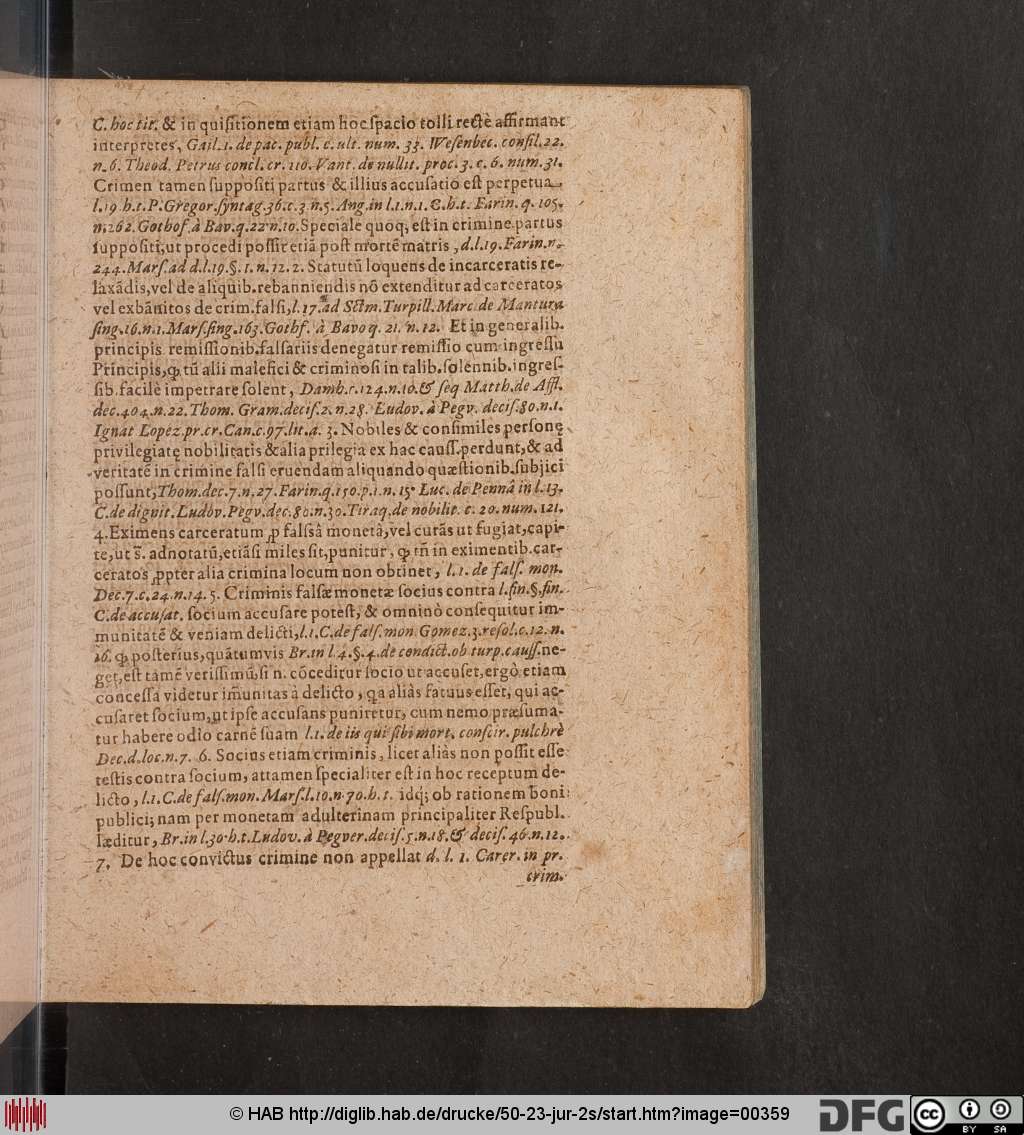 C. hoc tit. & in quisitionem etiam hoc spacio tolli rectè affirmant
interpretes, Gail. 1. de pac. publ. c. ult. num. 33. Wesenbec. consil. 22.
n. 6. Theod. Petrus concl. cr. 110. Vant. de nullit. proc. 3. c. 6. num. 31.
Crimen tamen suppositi partus & illius accusatio est perpetua,
l. 19. h. t. P. Gregor. syntag. 36. c. 3. n. 5. Ang. in l. 1. n. 1. C. h. t. Farin. q. 105.
n. 262. Gothof. à Bav. q. 22. n. 10. Speciale quoq; est in crimine partus
suppositi, ut procedi possit etiā post mortē matris, d. l. 19. Farin. n.
244. Mars. ad d. l. 19. §. 1. n. 12. 2. Statutū loquens de incarceratis re-
laxādis, vel de aliquib. rebanniendis nō extenditur ad carceratos
vel exbānitos de crim. falsi, l. 17. ad Sctm. Turpill. Marc. de Mantura
sing. 16. n. 1. Mars. sing. 163. Gothf. à Bavo q. 21. n. 12. Et in generalib.
principis remissionib. falsariis denegatur remissio cum ingressu
Principis, ꝙ tū alii malefici & criminosi in talib. solennib. ingres-
sib. facilè impetrare solent, Damh. c. 124. n. 10. & seq Matth. de Affl.
dec. 404. n. 22. Thom. Gram. decis. 2. n. 28. Ludov. à Pegv. decis. 80. n. 1.
Ignat Lopez. pr. cr. Can. c. 97. lit. a. 3. Nobiles & consimiles personę
privilegiatę nobilitatis & alia prilegia ex hac causs. perdunt, & ad
veritatē in crimine falsi eruendam aliquando quæstionib. subjici
possunt, Thom. dec. 7. n. 27. Farin. q. 150. p. 1. n. 15. Luc. de Pennâ in l. 13.
C. de dignit. Ludov. Pegv. dec. 80. n. 30. Tiraq. de nobilit. c. 20. num. 121.
4. Eximens carceratum ꝓ falssâ monetâ, vel curās ut fugiat, capi-
te, ut s̄. adnotatū, etiāsi miles sit, punitur, ꝙ tñ in eximentib. car-
ceratos ꝓpter alia crimina locum non obtinet, l. 1. de fals. mon.
Dec. 7. c. 24. n. 14. 5. Criminis falsæ monetæ socius contra l. fin. §. fin.
C. de accusat. socium accusare potest, & omninò consequitur im-
munitatē & veniam delicti, l. 1. C. de fals. mon. Gomez. 3. resol. c. 12. n.
16. ꝙ posterius, quātumvis Br. in l. 4. §. 4. de condict. ob turp. causs. ne-
get, est tamē verissimū, si n. cōceditur socio ut accuset, ergò etiam
concessa videtur im̄unitas à delicto, qa aliàs fatuus esset, qui ac-
cusaret socium, ut ipse accusans puniretur, cum nemo præsuma-
tur habere odio carnē suam l. 1. de iis qui sibi mort. conscir. pulchrè
Dec. d. loc. n. 7. 6. Socius etiam criminis, licet aliàs non possit esse
testis contra socium, attamen specialiter est in hoc receptum de-
licto, l. 1. C. de fals. mon. Mars. l. 10. n. 70. h. t. idq; ob rationem boni
publici; nam per monetam adulterinam principaliter Respubl.
læditur, Br. in l. 30. h. t. Ludov. à Pegver. decis. 5. n. 18. & decis. 46. n. 12.
7. De hoc convictus crimine non appellat d. l. 1. Carer. in pr.
crim.
© HAB http://diglib.hab.de/drucke/50-23-jur-2s/start.htm?image=00359
DFG
cc
BY SA